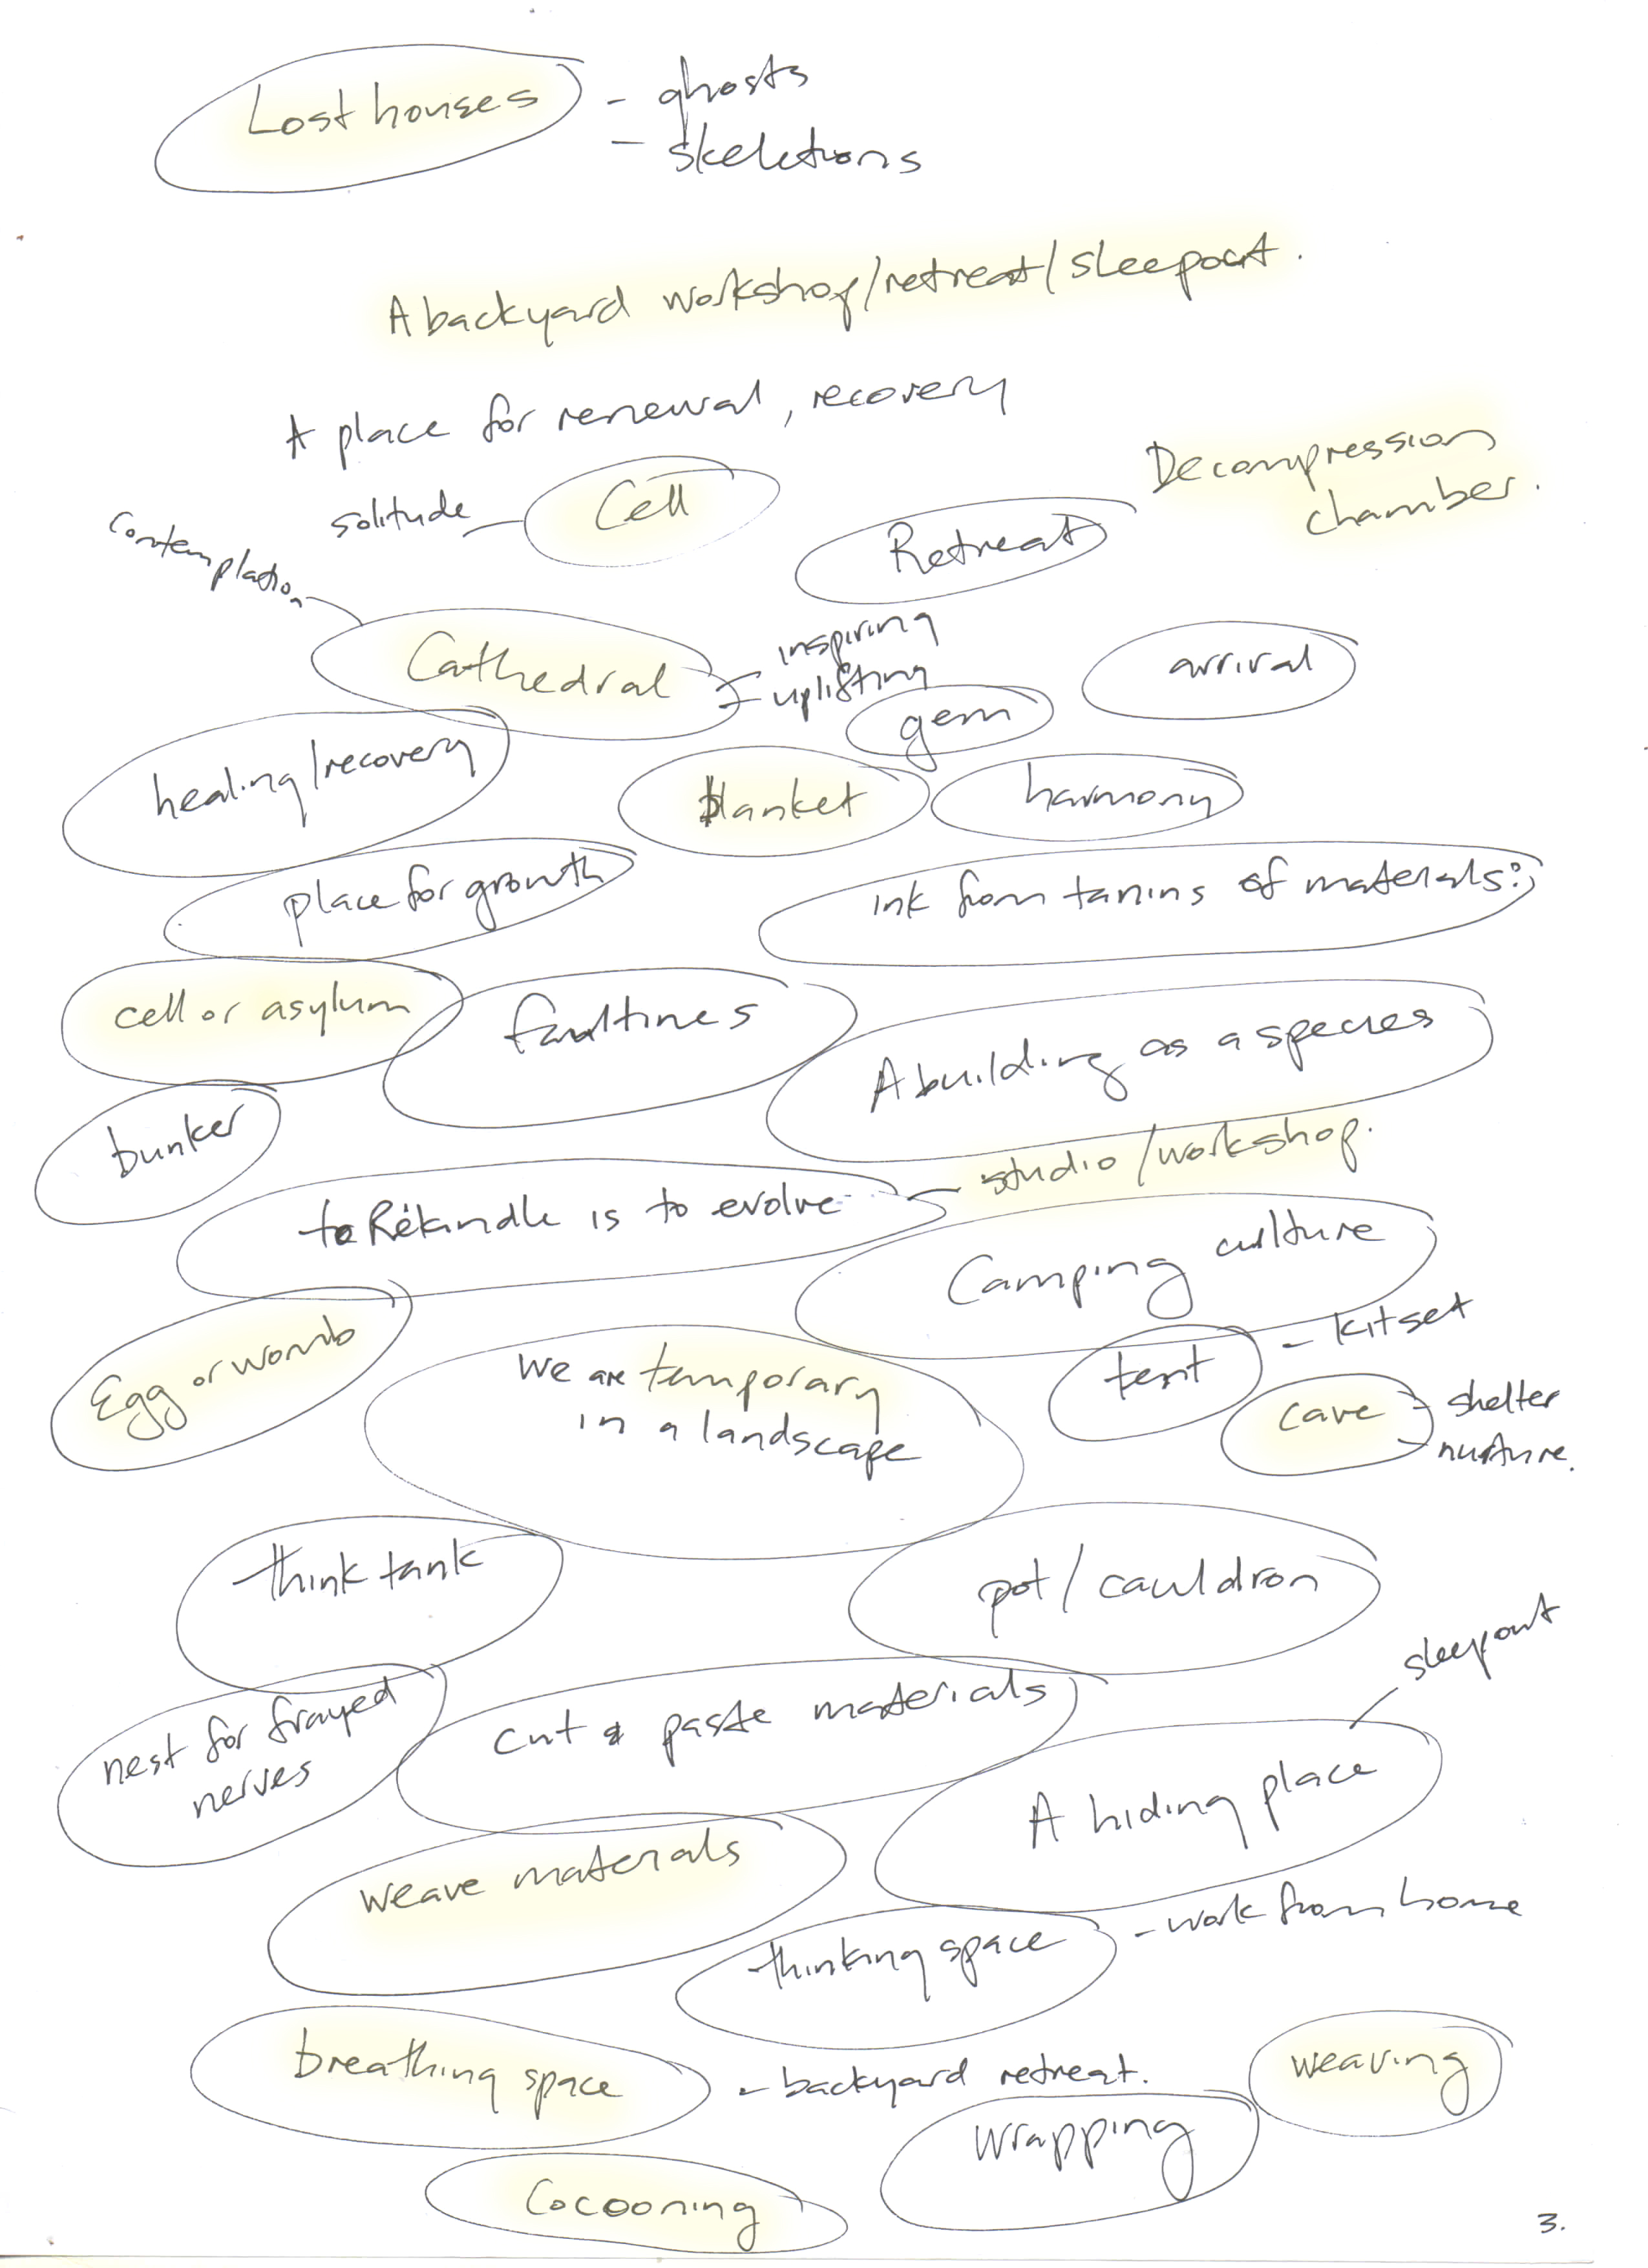 Lost houses
- ghosts
- skeletons
A backyard workshop/retreat/sleepout.
A place for renewal, recovery
Decompression
chamber.
solitude
Cell
Retreat
contemplation
Cathedral
- inspiring
- uplifting
arrival
gem
healing/recovery
blanket
harmony
place for growth
ink from tanins of materials?
cell or asylum
faultlines
A building as a species
bunker
to Rekindle is to evolve
- studio/workshop.
Camping culture
Egg or womb
we are temporary
in a landscape
tent
- kitset
cave
- shelter
- nurture.
think tank
pot/cauldron
sleepout
nest for frayed
nerves
cut & paste materials
A hiding place
weave materials
thinking space
- work from home
breathing space
- backyard retreat.
weaving
wrapping
Cocooning
3.